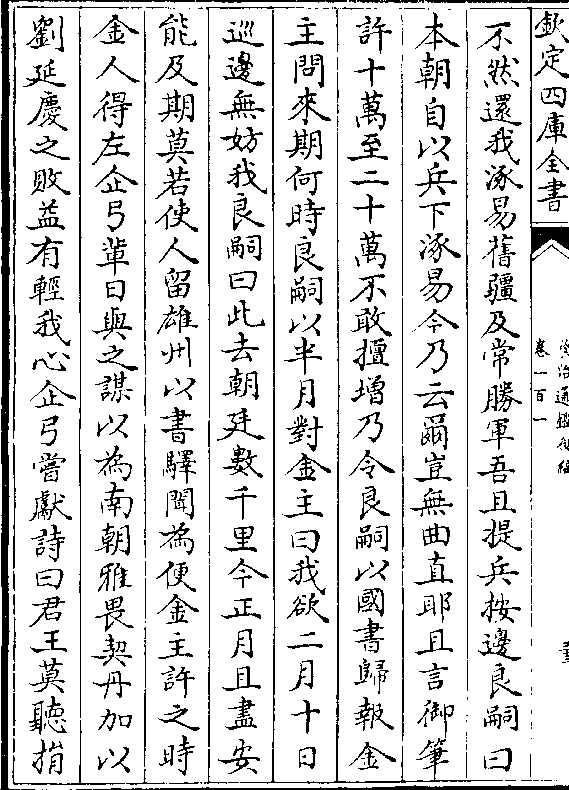 欽定四庫全書
資治通鑑後編
卷一百一
不然還我涿易舊疆及常勝軍吾且提兵按邊良嗣曰
本朝自以兵下涿易今乃云爾豈無曲直耶且言御筆
許十萬至二十萬不敢擅增乃令良嗣以國書歸報金
主問來期何時良嗣以半月對金主曰我欲二月十日
巡邊無妨我良嗣曰此去朝廷數千里今正月且盡安
能及期莫若使人留雄州以書驛聞為便金主許之時
金人得左企弓輩日與之謀以為南朝雅畏契丹加以
劉延慶之敗益有輕我心企弓嘗獻詩曰君王莫聽捐